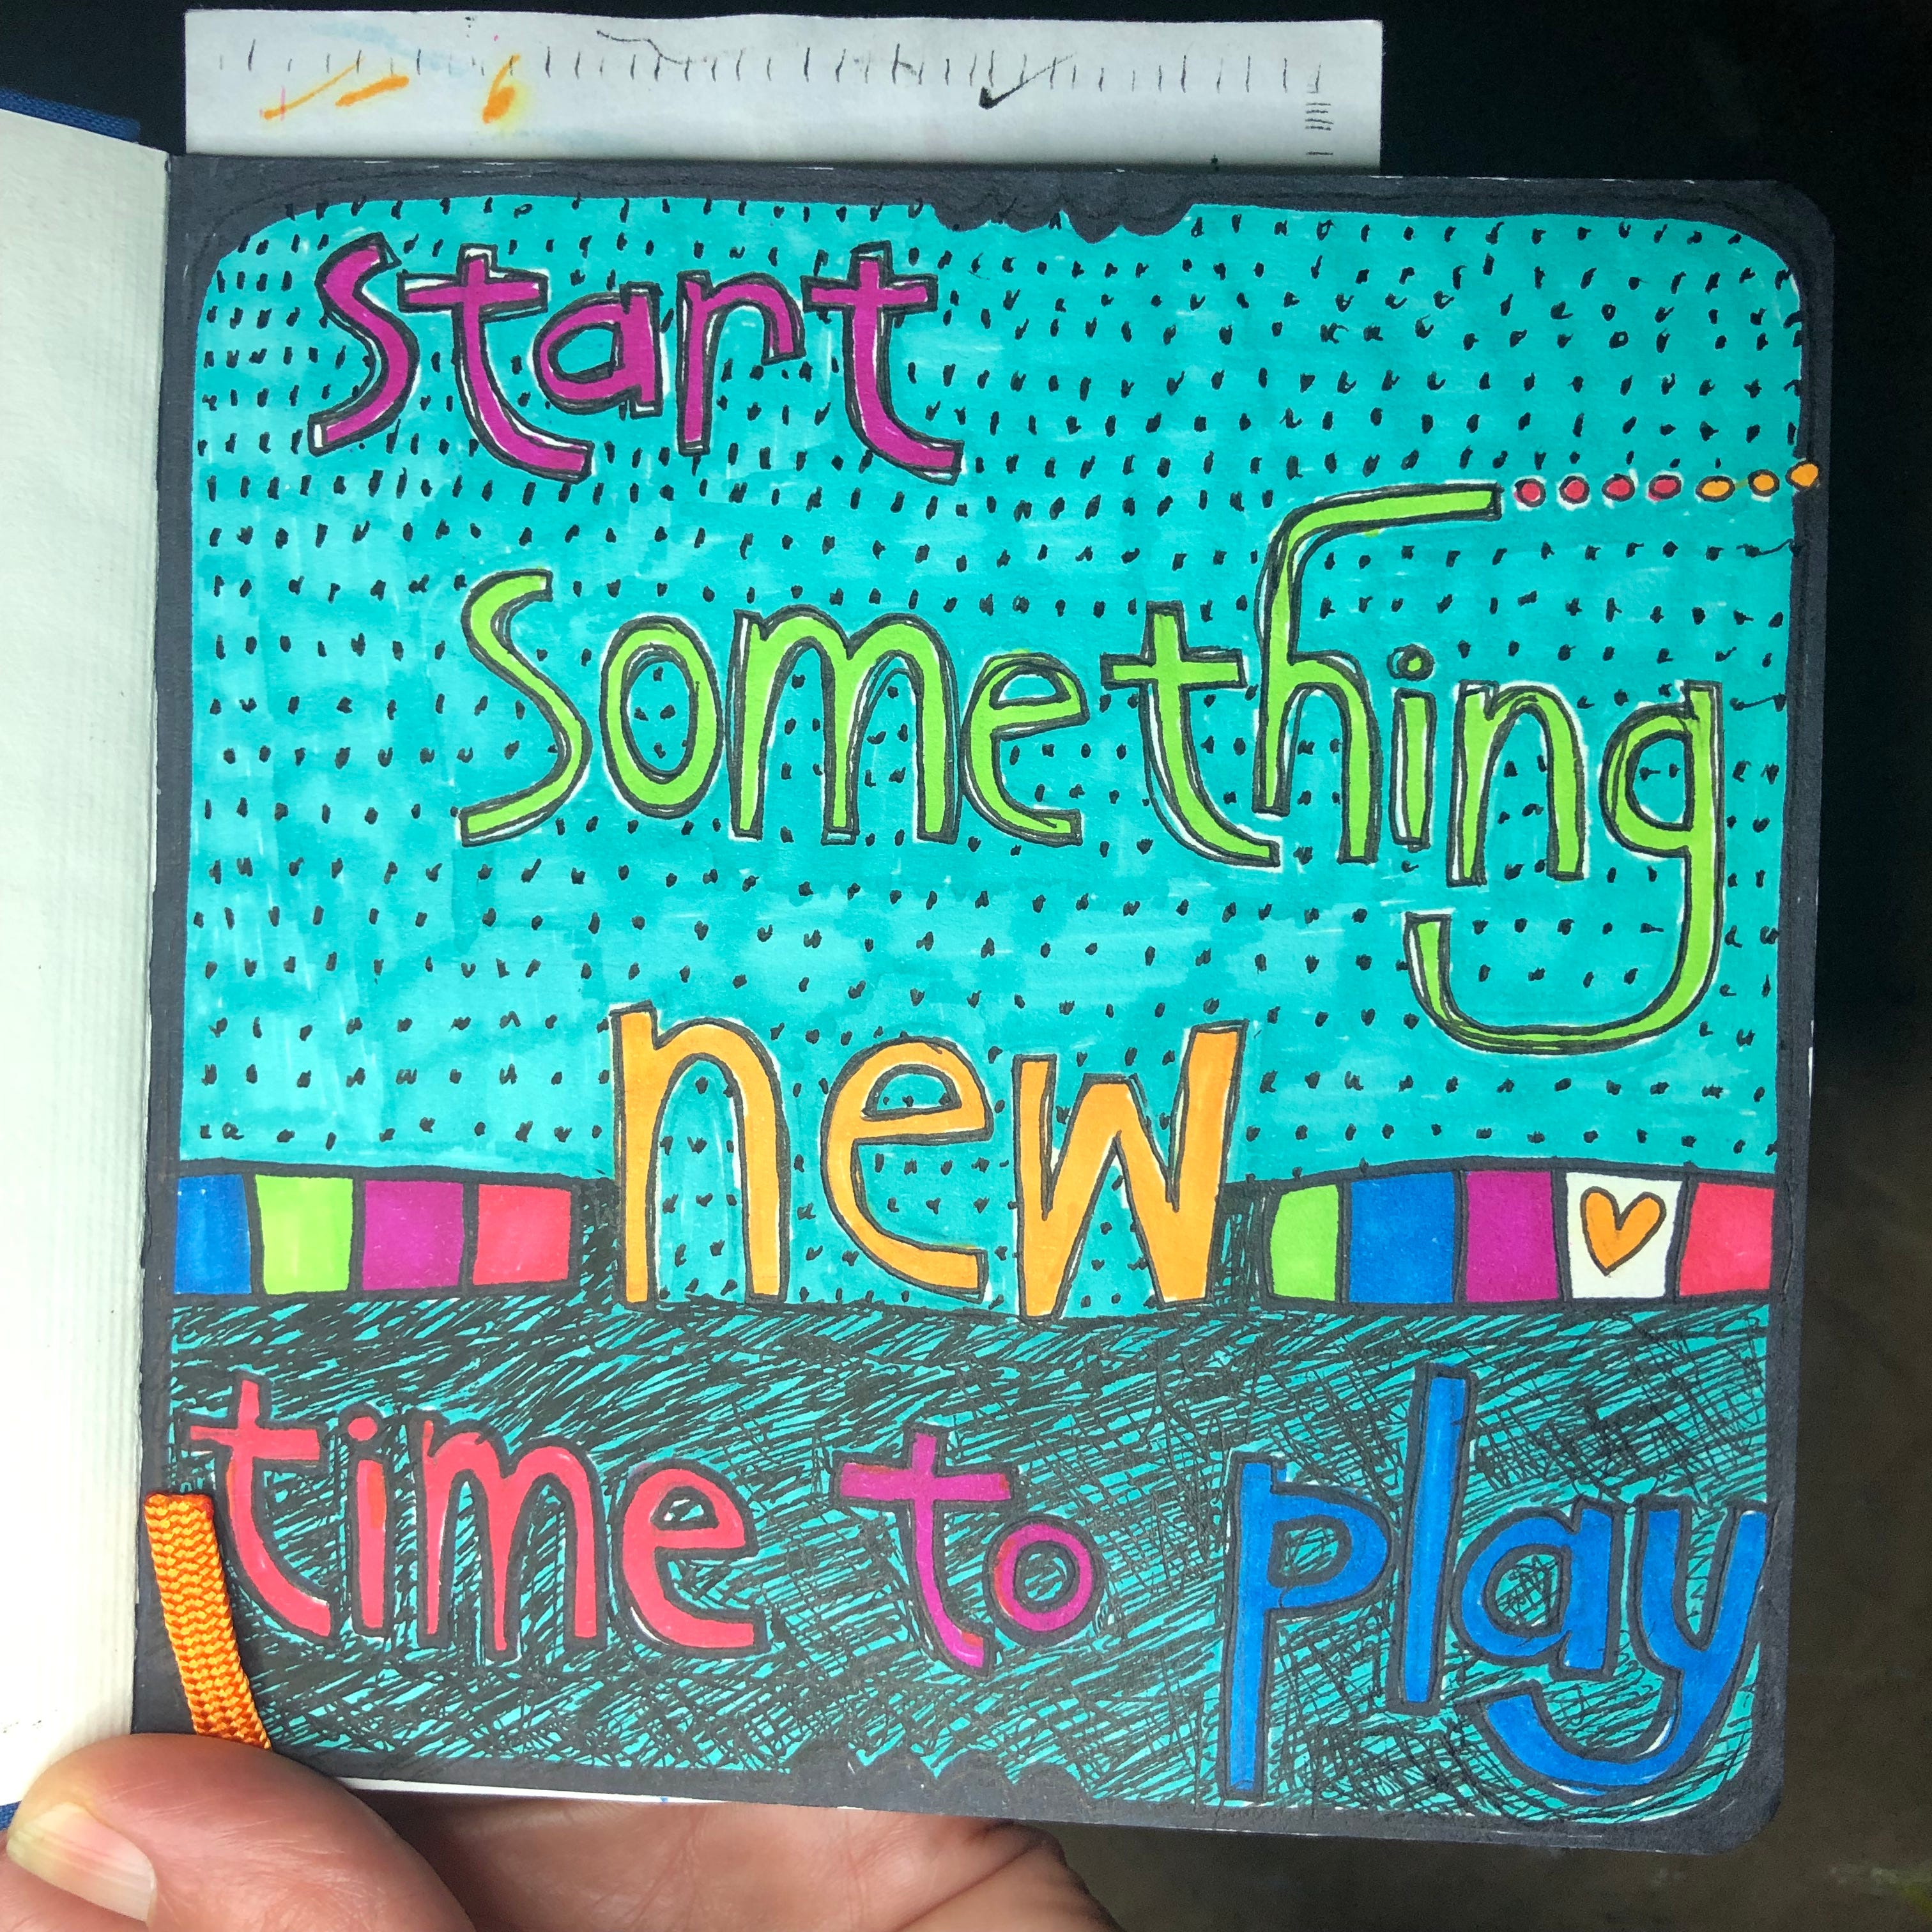 start
something
new
time to play